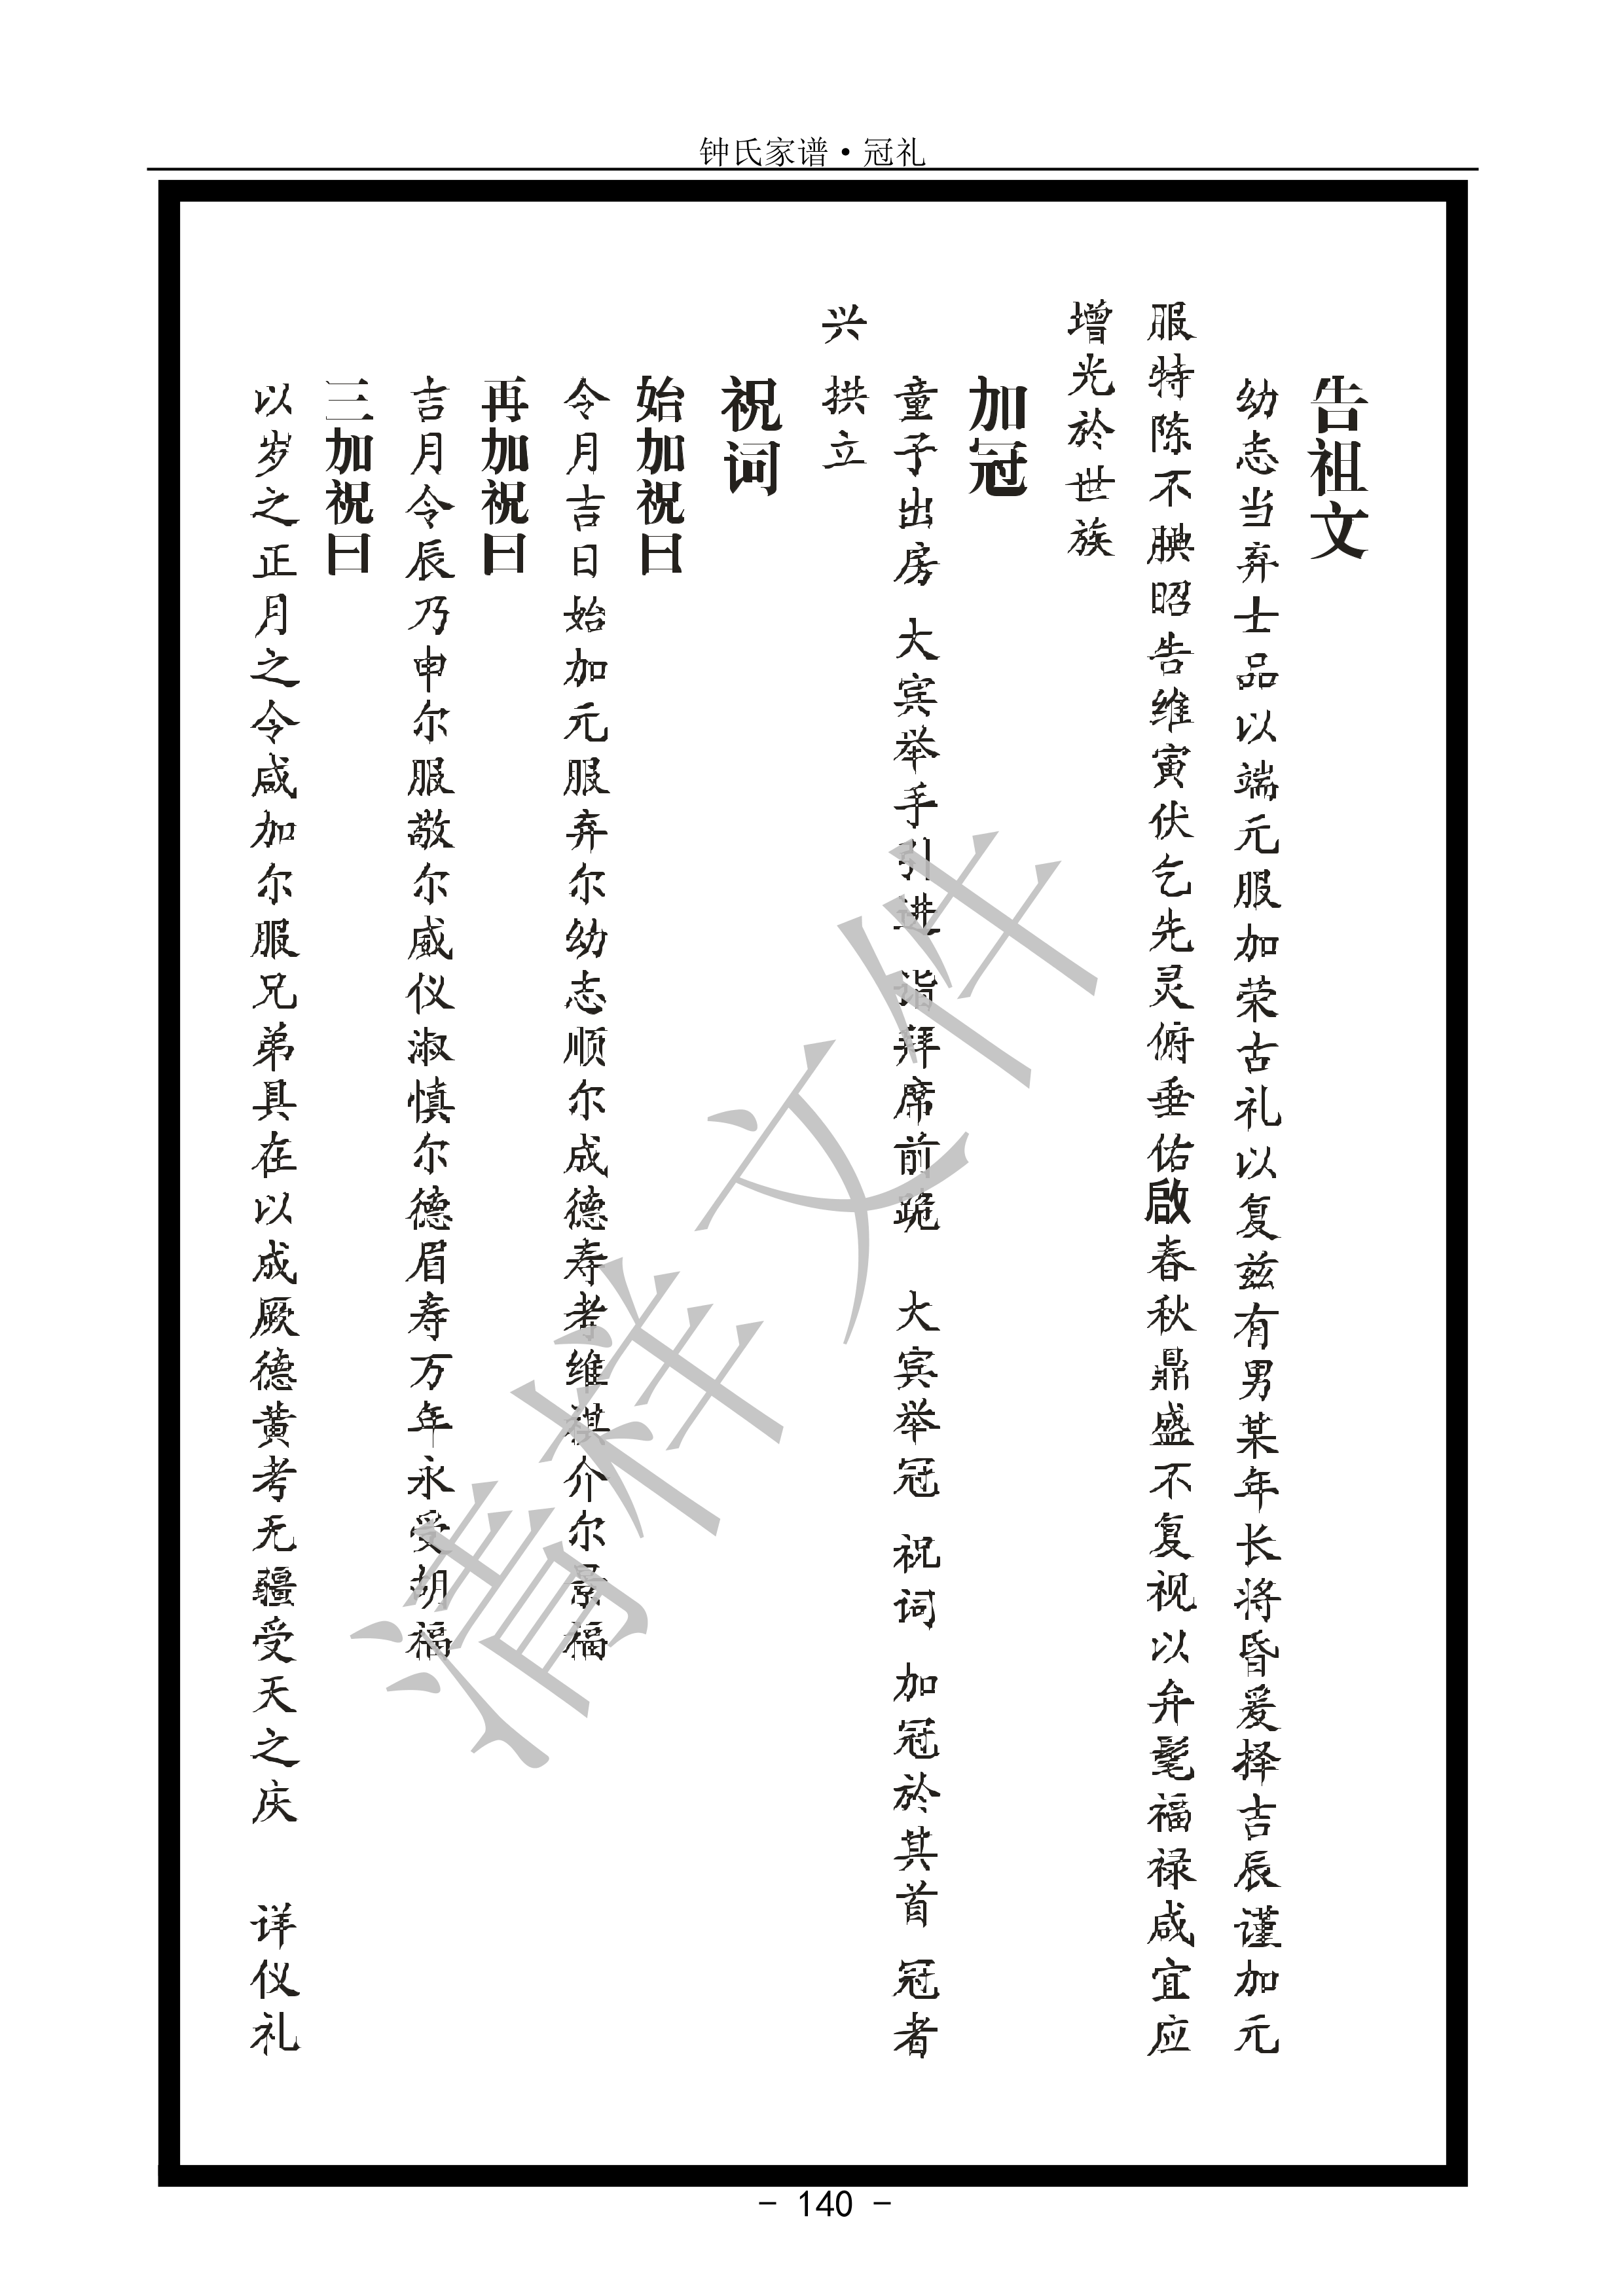 钟氏家谱·冠礼
告祖文
幼志当弃士品以端元服加荣古礼以复兹有男某年长将昏爰择吉辰谨加元
服特陈不腆昭告维寅伏乞先灵俯垂佑啟春秋鼎盛不复视以弁髦福禄咸宜应
增光於世族
加冠
童子出房 大宾举手引进 诣拜席前跪 大宾举冠 祝词 加冠於其首 冠者
兴 拱立
祝词
始加祝曰
令月吉日始加元服弃尔幼志顺尔成德寿考维祺介尔景福
再加祝曰
吉月令辰乃申尔服敬尔威仪淑慎尔德眉寿万年永受胡福
三加祝曰
以岁之正月之令咸加尔服兄弟具在以成厥德黄考无疆受天之庆 详仪礼
清样文件
- 140 -